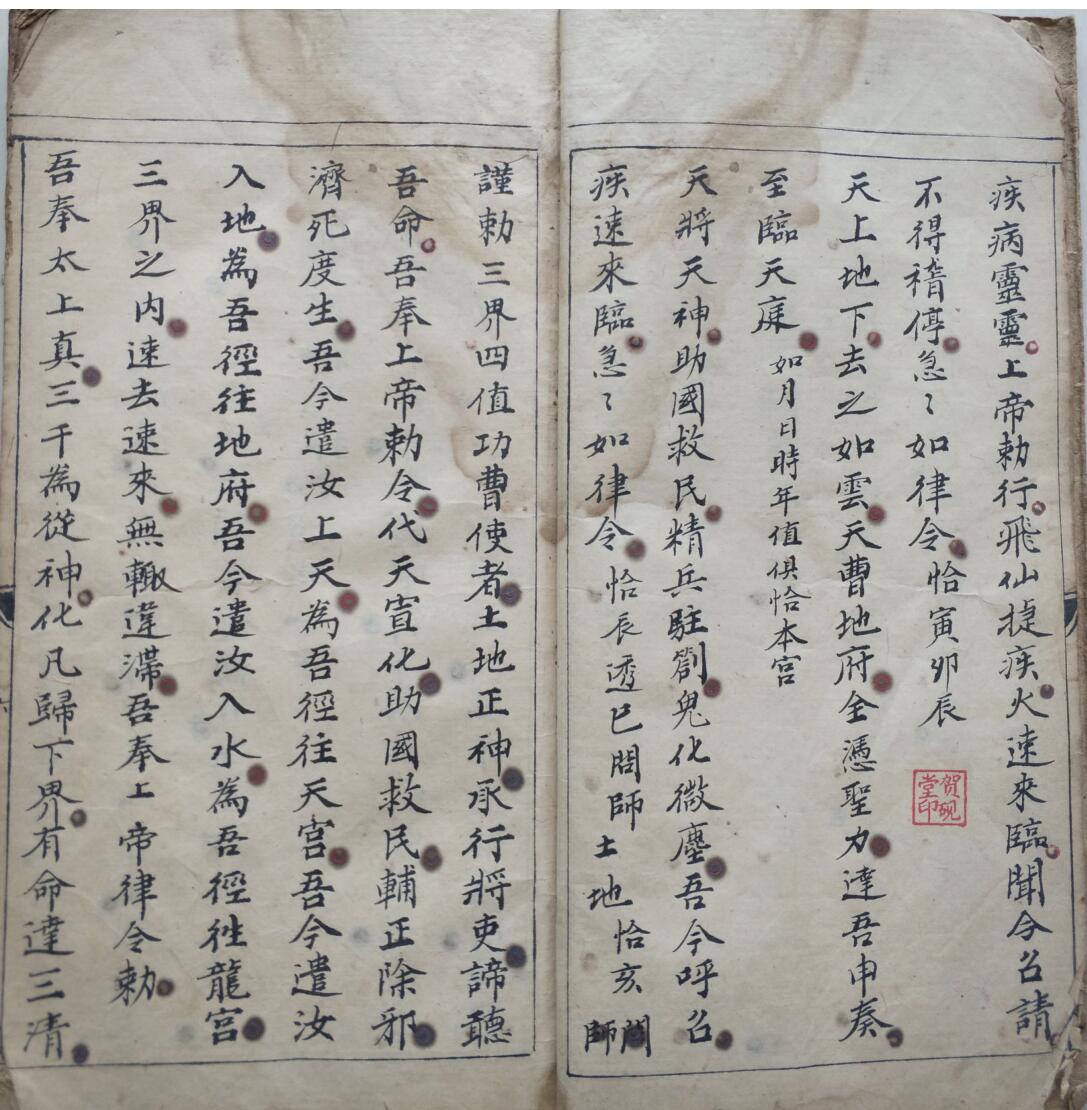 疾病靈靈上帝勅行飛仙捷疾火速來臨聞今召請
不得稽停急〻如律令恰寅卯辰
賀硯堂印
天上地下去之如雲天曹地府全憑聖力達吾申奏
至臨天庭如月日時年值俱恰本宮
天將天神助國救民精兵駐劄鬼化微塵吾今呼召
疾速來臨急〻如律令恰辰透巳問師土地恰亥問師
謹勅三界四值功曹使者土地正神承行將吏諦聽
吾命吾奉上帝勅令代天宣化助國救民輔正除邪
濟死度生吾今遣汝上天為吾徑往天宮吾今遣汝
入地為吾徑往地府吾今遣汝入水為吾徑往龍宮
三界之內速去速來無輙違滯吾奉上帝律令勅
吾奉太上真三千為從神化凡歸下界有命達三清